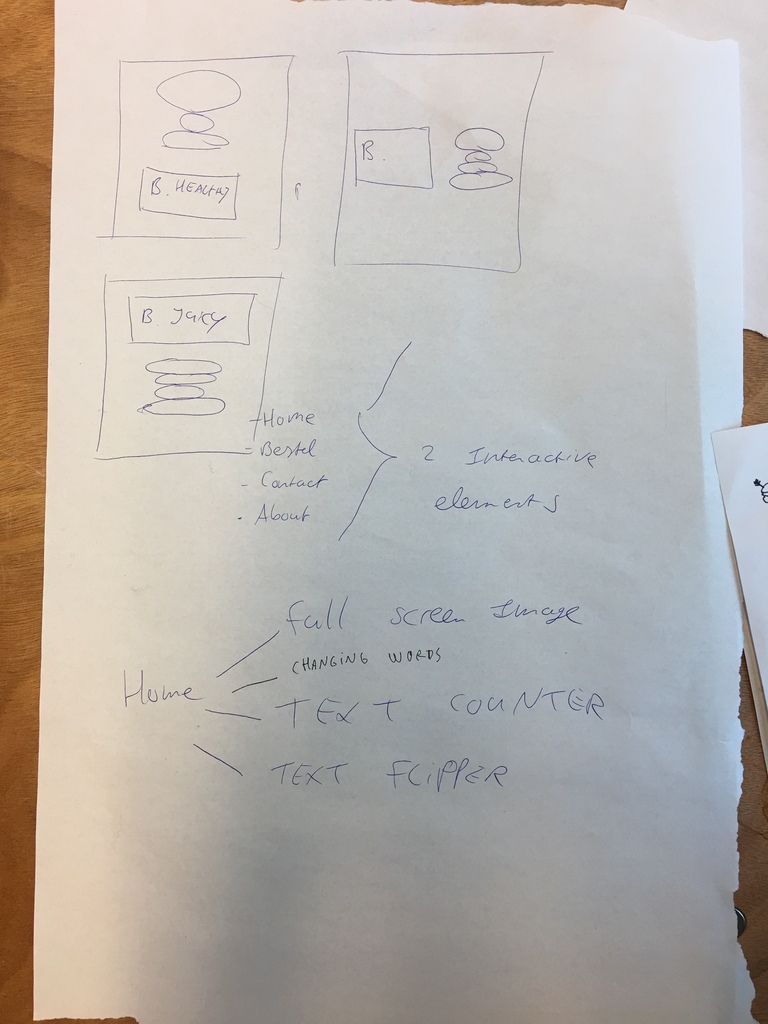 B. HEALTHY
B.
B. JUICY
- Home
- Bestel
- Contact
- About
2 Interactive
elements
Home
full screen Image
CHANGING WORDS
TEXT COUNTER
TEXT FLIPPER